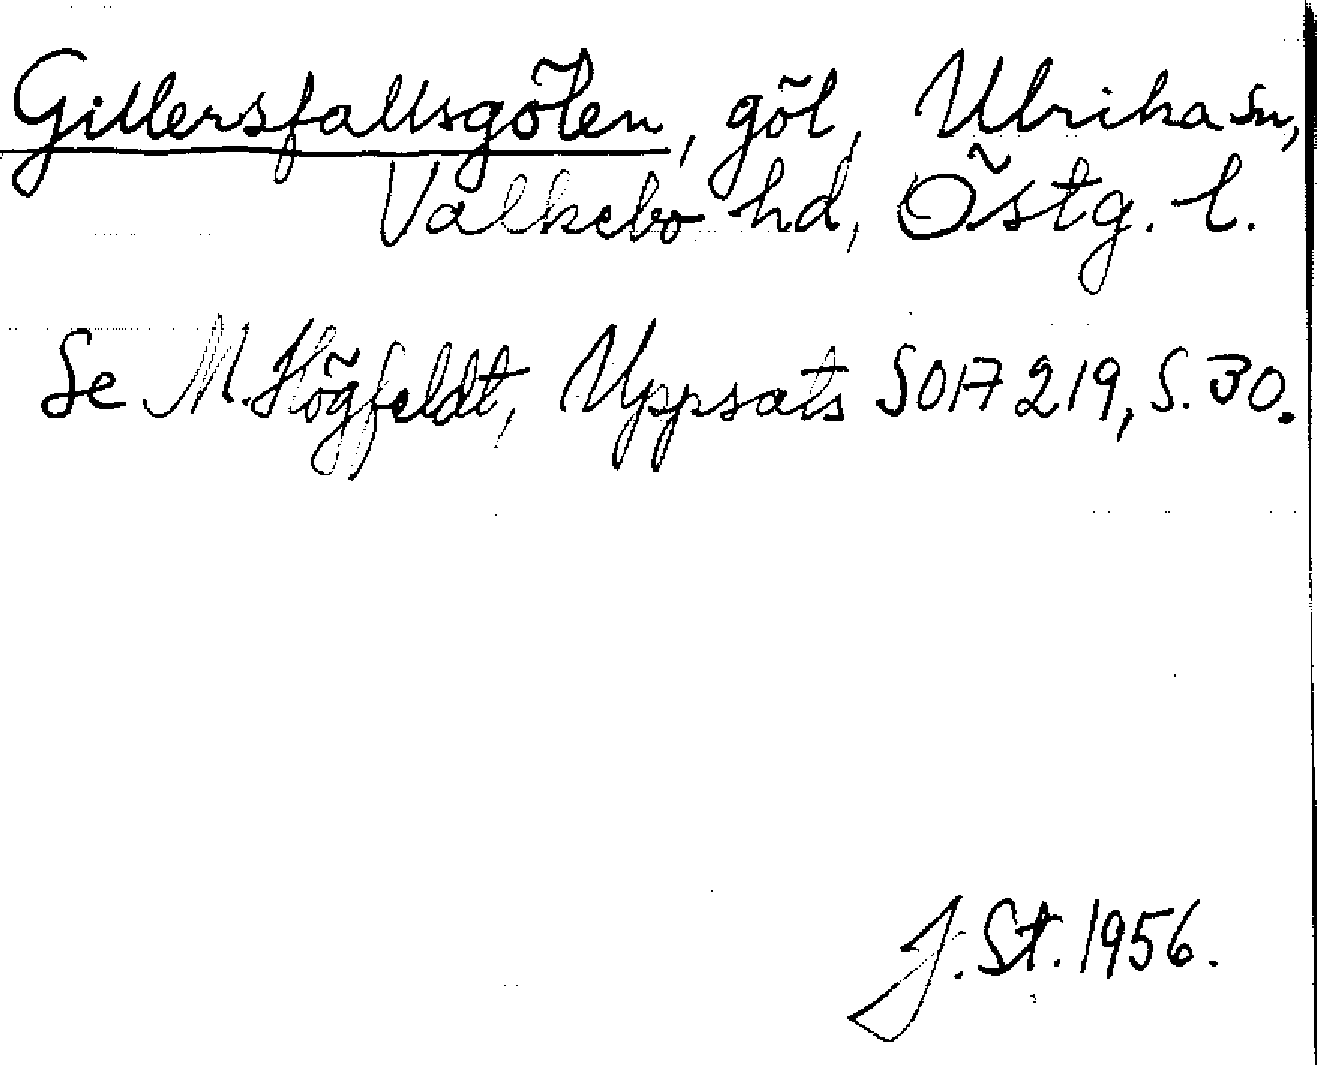 Gillersfallsgölen, göl, Ulrika sn,
Valkebo hd, Östg. l.
Se M. Högfeldt, Uppsats SOA 219, S. 30.
J. St. 1956.